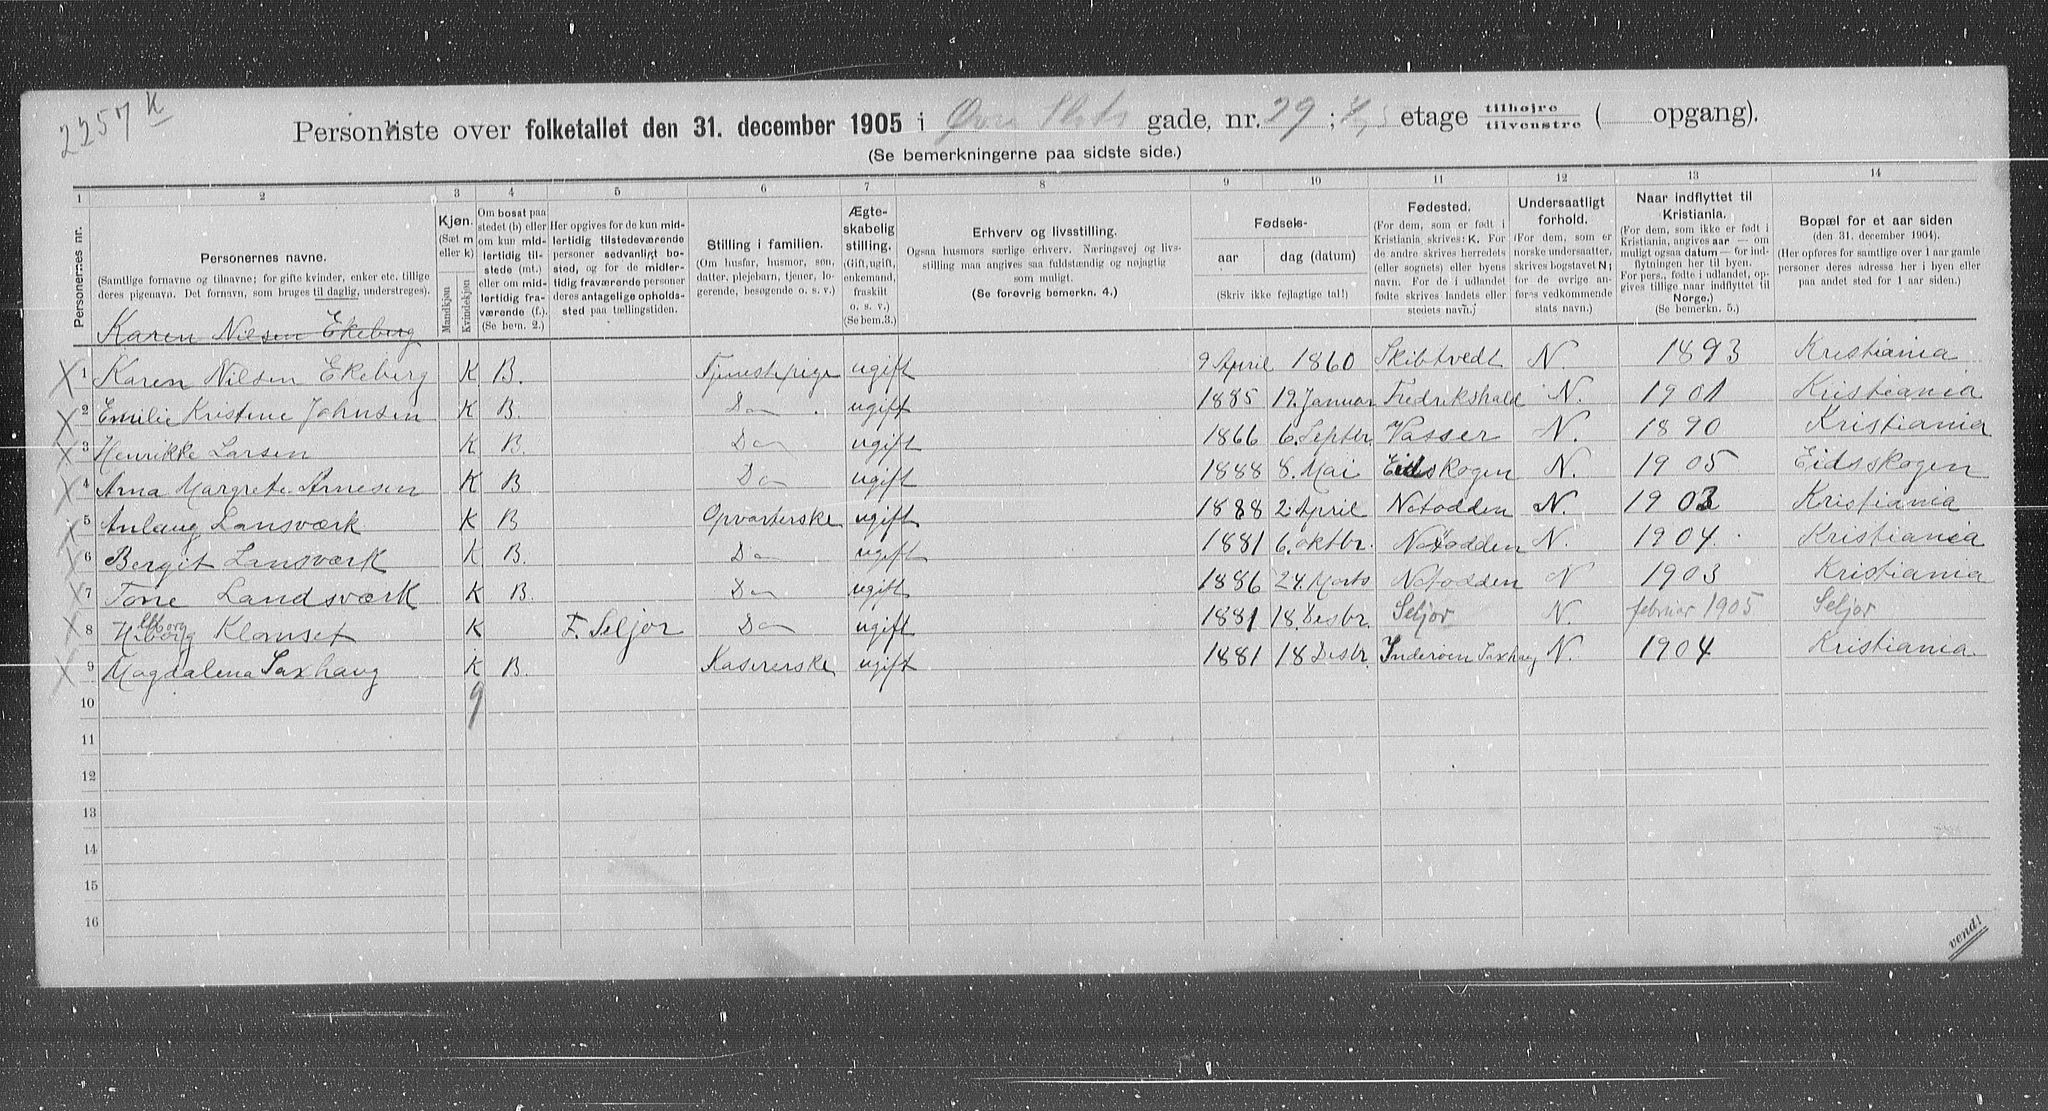 2257 K
Personliste over folketallet den 31. december 1905 i Øvre Slots gade, nr. 29 ; etage tilhøire tilvenstre ( opgang).
(Se bemerkningerne paa sidste side.)
1 2 3 4 5 6 7 8 9 10 11 12 13 14
Personernes nr.
Personernes navne.
(Samtlige fornavne og tilnavne; for gifte kvinder, enker etc. tillige
deres pigenavn. Det fornavn, som bruges til daglig, understreges).
Kjøn.
(Sæt m
eller k)
Mandkjøn
Kvindekjøn
Om bosat paa
stedet (b) eller
om kun mid-
lertidig til-
stede (mt.)
eller om mid-
lertidig fra-
værende (f.).
(Se bem. 2.)
Her opgives for de kun mid-
lertidig tilstedeværende
personer sedvanligt bo-
sted, og for de midler-
tidig fraværende personer
deres antagelige opholds-
sted paa tællingstiden.
Stilling i familien.
(Om husfar, husmor, søn,
datter, plejebarn, tjener, lo-
gerende, besøgende o. s. v.)
Ægte-
skabelig
stilling.
(Gift, ugift,
enkemand,
fraskilt
o. s. v.)
(Se bem.3.)
Erhverv og livsstilling.
Ogsaa husmors særlige erhverv. Næringsvej og livs-
stilling maa angives saa fuldstændig og nøjagtig
som muligt.
(Se forøvrig bemerkn. 4.)
Fødsels-
aar dag (datum)
(Skriv ikke fejlagtige tal!)
Fødested.
(For dem, som er født i
Kristiania, skrives: K. For
de andre skrives herredets
(eller sognets) eller byens
navn. For de i udlandet
fødte skrives landets eller
stedets navn.)
Undersaatligt
forhold.
(For dem, som er
norske undersaatter,
skrives bogstavet N;
for de øvrige an-
føres vedkommende
stats navn.)
Naar indflyttet til
Kristiania.
(For dem, som ikke er født i
Kristiania, angives aar — om
muligt ogsaa datum — for ind-
flytningen her til byen.
For pers., fødte i udlandet, op-
gives tillige naar indflyttet til
Norge.)
(Se bemerkn. 5.)
Bopæl for et aar siden
(den 31. december 1904).
(Her opføres for samtlige over 1 aar gamle
personer deres adresse her i byen eller
paa andet sted for 1 aar siden.)
Karen Nilsen Ekeberg
1 Karen Nilsen Ekeberg K B. Tjenestepige ugift 9 April 1860 Skibtvedt N. 1893 Kristiania
2 Emilie Kristine Johnsen K B. Do ugift 1885 19. Januar Fredrikshald N. 1901 Kristiania
3 Henrikke Larsen K B. Do ugift 1866 6. Septbr. Vasser N. 1890 Kristiania
4 Arna Margrete Arnesen K B Do ugift 1888 8. Mai Eidskogen N. 1905 Eidsskogen
5 Anlaug Lansværk K B Opvarterske ugift 1888 2. April Notodden N. 1903 Kristiania
6 Bergit Lansværk K B. Do ugift 1881 6. oktbr. Notodden N. 1904. Kristiania
7 Tone Landsværk K B. Do ugift 1886 24 Marts Notodden N 1903 Kristiania
8 Klomset K F. Seljor Do ugift 1881 18. Desbr. Seljor N. februar 1905 Seljor
9 Magdalena Saxhaug K B. Kasererske ugift 1881 18 Desbr. Inderøen Saxhaug N. 1904 Kristiania
9
10
11
12
13
14
15
16
vend!